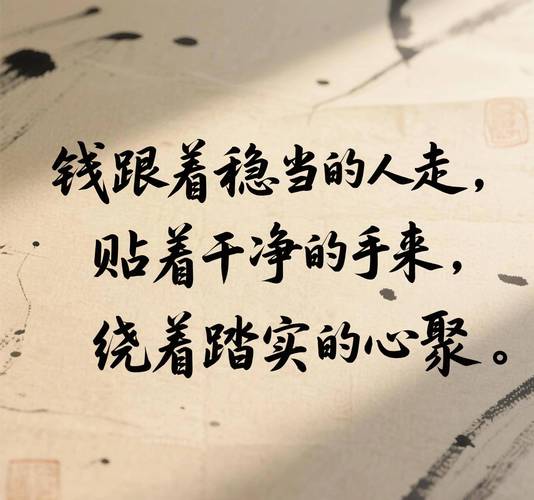 钱跟着稳当的人走，
贴着干净的手来，
绕着踏实的心聚。